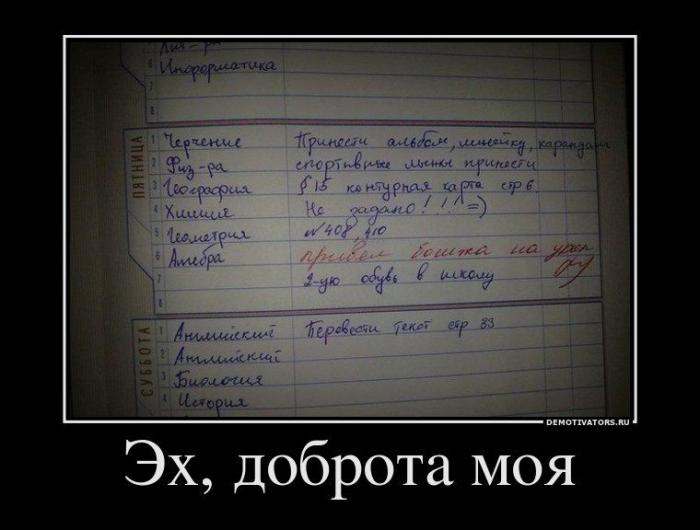 Лит-ра
6 Информатика
7
8
ПЯТНИЦА
1 Черчение Принести альбом, линейку, карандаш
2 Физ-ра спортивные лыжи принести
3 География § 15 контурная карта стр 6
4 Химия Не задано!!! =)
5 Геометрия №408, 410
6 Алгебра привел бошка на урок
7 2-ую обувь в школу
8
СУББОТА
1 Английский Перевести текст стр 33
2 Английский
3 Биология
4 История
DEMOTIVATORS.RU
Эх, доброта моя